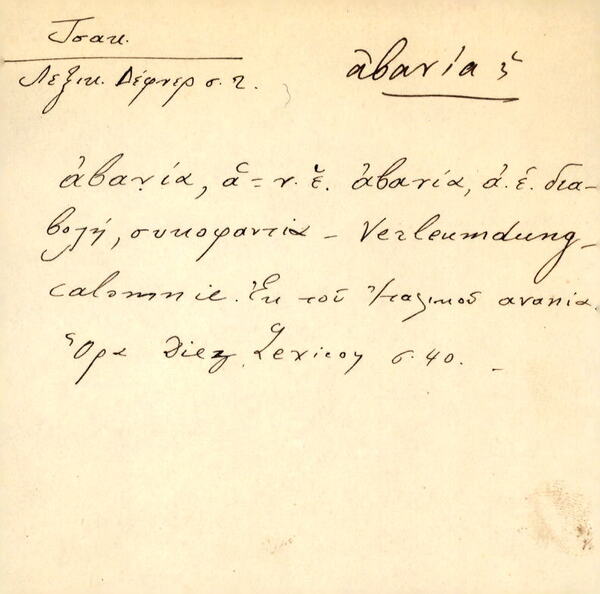 Τσακ.
Λεξικ. Δέφνερ σ. 2.
ἀβανία ἁ
ἀβανία, ἁ = ν. ἑ. ἀβανία, ἀ. ἑ. δια-
βολή, συκοφαντία – Verleumdung –
calomnie. Ἐκ τοῦ Ἰταλικοῦ avania.
Ὅρα Diez, Lexicon σ. 40. –